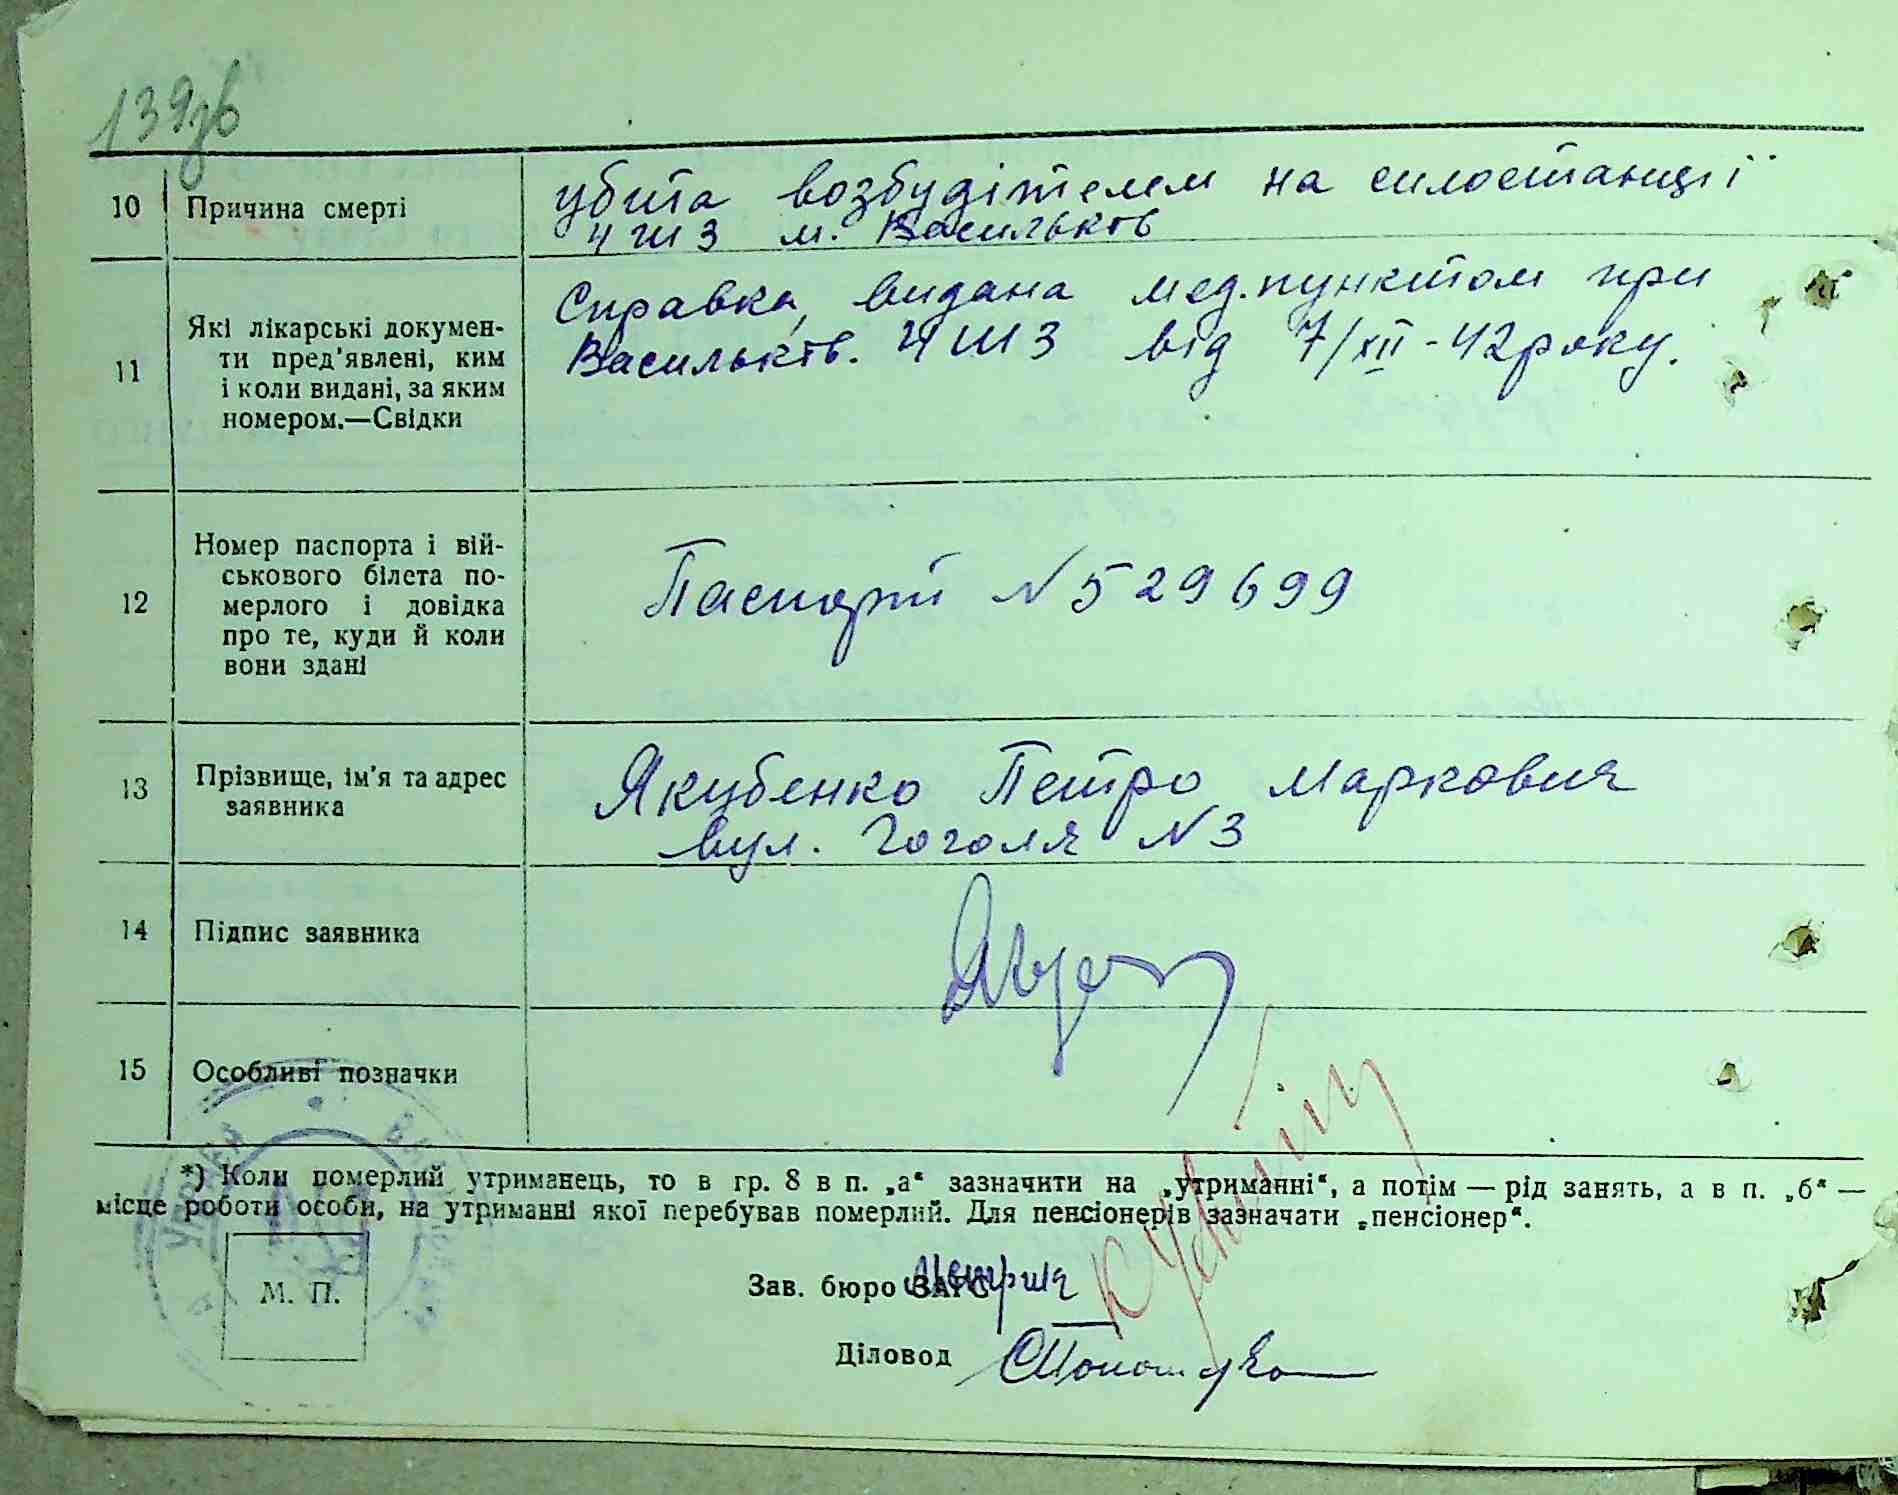 139зв
10 Причина смерті
убита возбудітелем на силостанциї
ЧШЗ м. Васильків
11 Які лікарські докумен-
ти пред'явлені, ким
і коли видані, за яким
номером.—Свідки
Справка, видана мед.пунктом при
Васильків. ЧШЗ від 7/XII-42 року.
12 Номер паспорта і вій-
ськового білета по-
мерлого і довідка
про те, куди й коли
вони здані
Паспорт N 529699
13 Прізвище, ім'я та адрес
заявника
Якубенко Петро Маркович
вул. Гоголя N 3
14 Підпис заявника
15 Особливі позначки
*) Коли померлий утриманець, то в гр. 8 в п. „а“ зазначити на „утриманні“, а потім — рід занять, а в п. „б“ —
місце роботи особи, на утриманні якої перебував померлий. Для пенсіонерів зазначати „пенсіонер“.
М. П.
Зав. бюро ЗАГС
Діловод